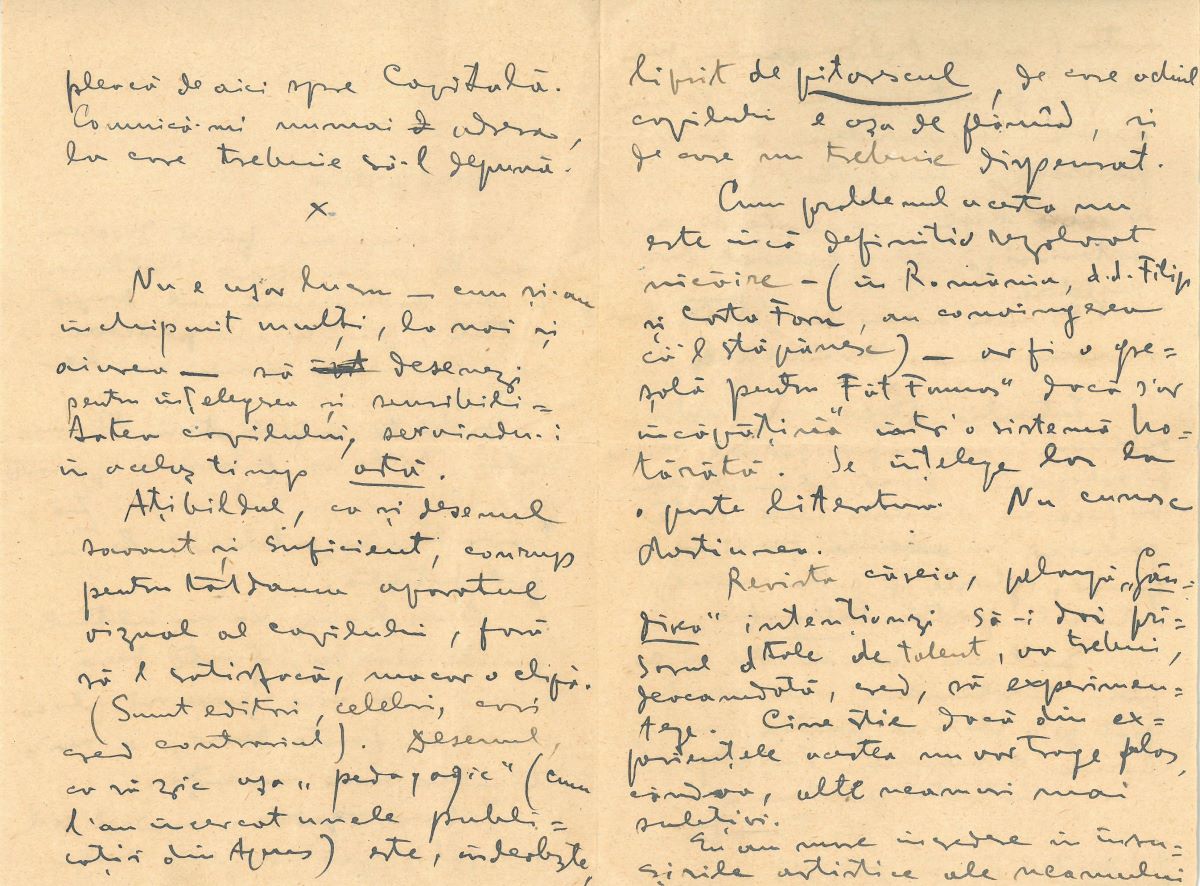 pleacă de aici spre Capitală.
Comunică-mi numai adresa,
la care trebuie să-l depună.
x
Nu e ușor lucru — cum și-au
închipuit mulți, la noi și
aiurea — să desenezi
pentru înțelegerea și sensibili=
tatea copilului, servindu-i
în acelaș timp artă.
Ațibildul, ca și desenul
savant și suficient, corup
pentru totdauna aparatul
vizual al copilului, fără
să-l satisfacă, macar o clipă.
(Sunt editori, celebri, cari
cred contrariul). Desenul,
ca să zic așa „pedagogic" (cum
l'au incercat unele publi=
cații din Apus) este, îndeobște,
lipsit de pitorescul, de care ochiul
copilului e așa de flămând, și
de care nu trebuie dispensat.
Cum problemul acesta nu
este încă definitiv rezolvat
nicăire — (în România, d.d. Filip
și Costa Foru, au convingerea
că'l stăpânesc) — ar fi o gre=
șală pentru „Făt Frumos" dacă s'ar
încăpățină într'o sistemă ho=
tărâtă. Se înțelege las la
o parte litteratura. Nu cunosc
chestiunea.
Revista căreia, pelangă „Gân-
direa" intenționezi să-i dai pri=
sosul dtale de talent, va trebui,
deocamdată, cred, să experimen=
teze. Cine știe dacă din ex=
periențele acestea nu vor trage folos,
cândva, alte neamuri mai
selective.
Eu am mare incredere in însu=
șirile artistice ale neamului